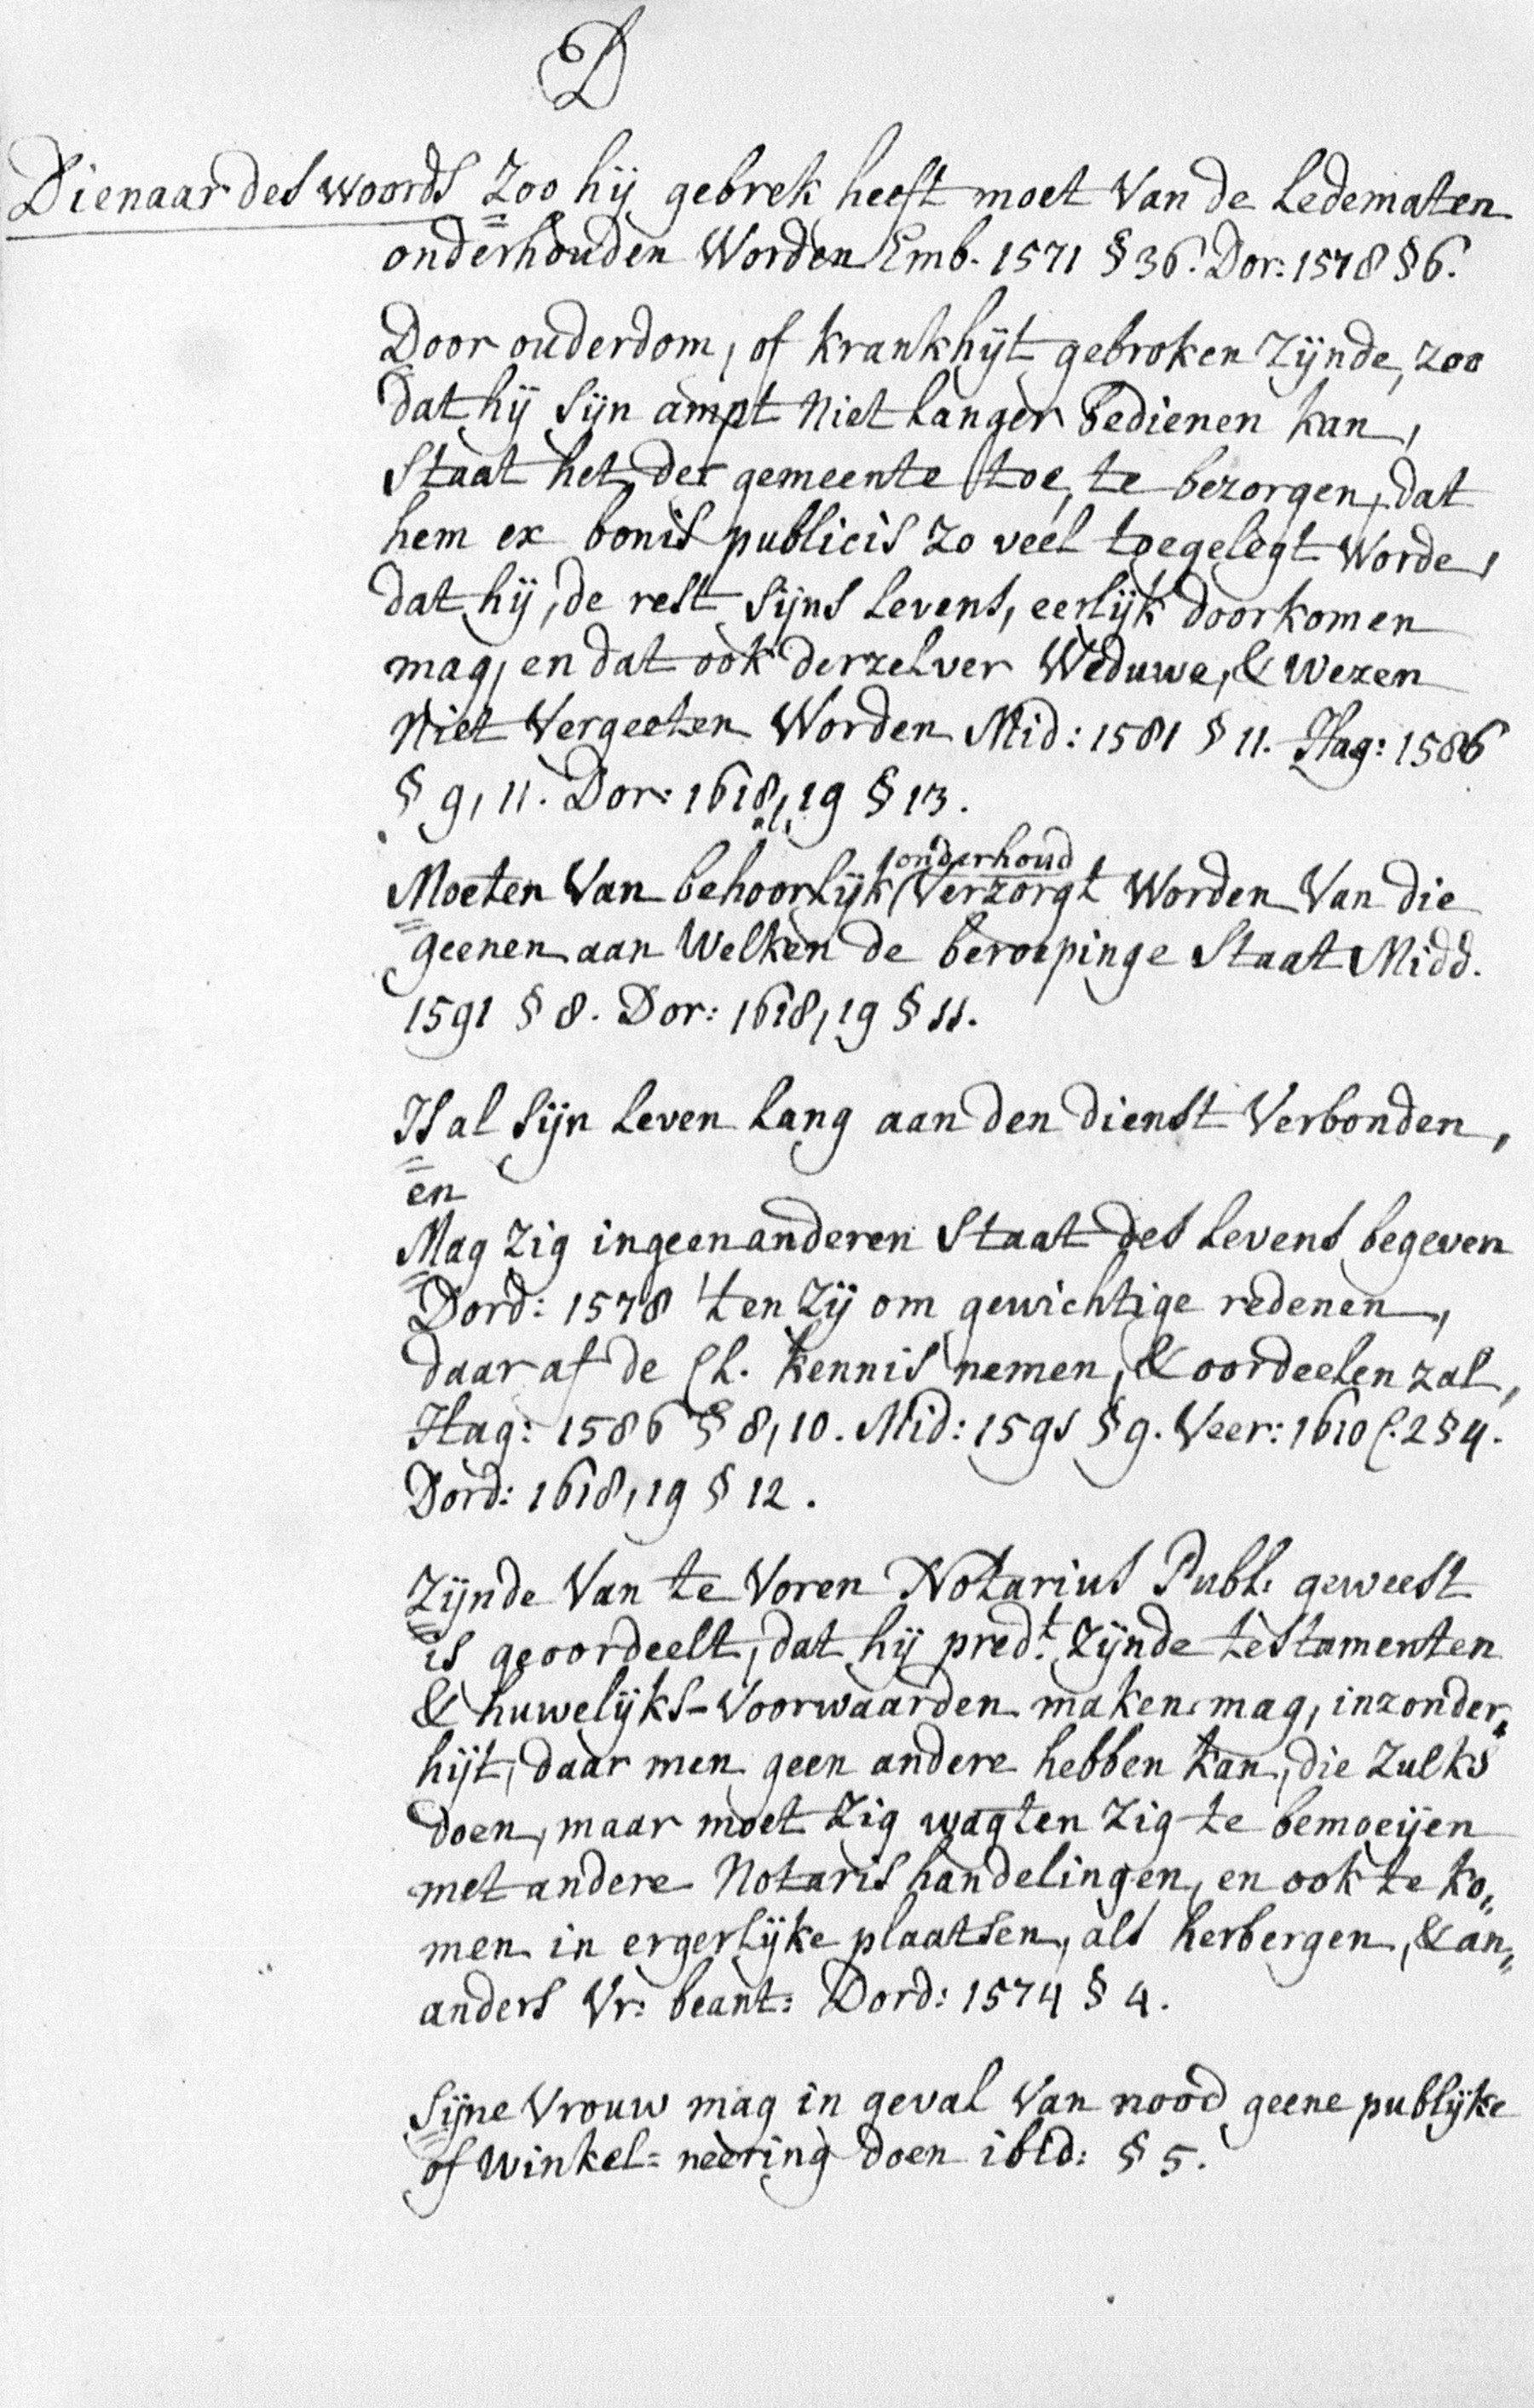 D
Dienaar des woords Zoo hij gebrek heeft moet Van de Ledematen
onderhouden Worden Emb. 1571 § 36. Dor: 1578 § 6.
Door ouderdom, of krankhijt gebroken Zijnde, zoo
dat hij Sijn ampt Niet Langer Bedienen kan,
Staat het der gemeente toe, te bezorgen, dat
hem ex bonis publicis Zo veel toegelegt Worde,
dat hij, de rest Sijns Levens, eerlijk doorkomen
mag, en dat ook derzelver Weduwe, & Wezen
Niet Vergeeten Worden Mid: 1581 § 11. Hag: 1586
§ 9, 11. Dor: 1618, 19 § 13.
onderhoud
Moeten Van behoorlijk Verzorgt Worden Van die
geenen aan Welken de beroepinge Staat Midd.
1591 § 8. Dor: 1618, 19 § 11.
Is al Sijn Leven Lang aan den dienst Verbonden,
en
Mag Zig in geen anderen Staat des Levens begeven
Dord: 1578 't en Zij om gewichtige redenen,
daar af de Cl. kennis nemen, & oordeelen zal,
Hag: 1586 § 8, 10. Mid: 1591 § 9. Veer: 1610 C. 2 § 4.
Dord: 1618, 19 § 12.
Zijnde Van te Voren Notarius Publ: geweest
is geoordeelt, dat hij predt. Zijnde testamenten
& huwelijks-Voorwaarden maken mag, inzonder„
hijt, daar men geen andere hebben kan, die Zulks
doen, maar moet Zig wagten Zig te bemoeijen
met andere Notaris handelingen, en ook te ko„
men in ergerlijke plaatsen, als herbergen, & an„
anders Vr: beant: Dord: 1574 § 4.
Sijne Vrouw mag in geval Van nood geene publijke
of Winkel= neering doen ibid: § 5.